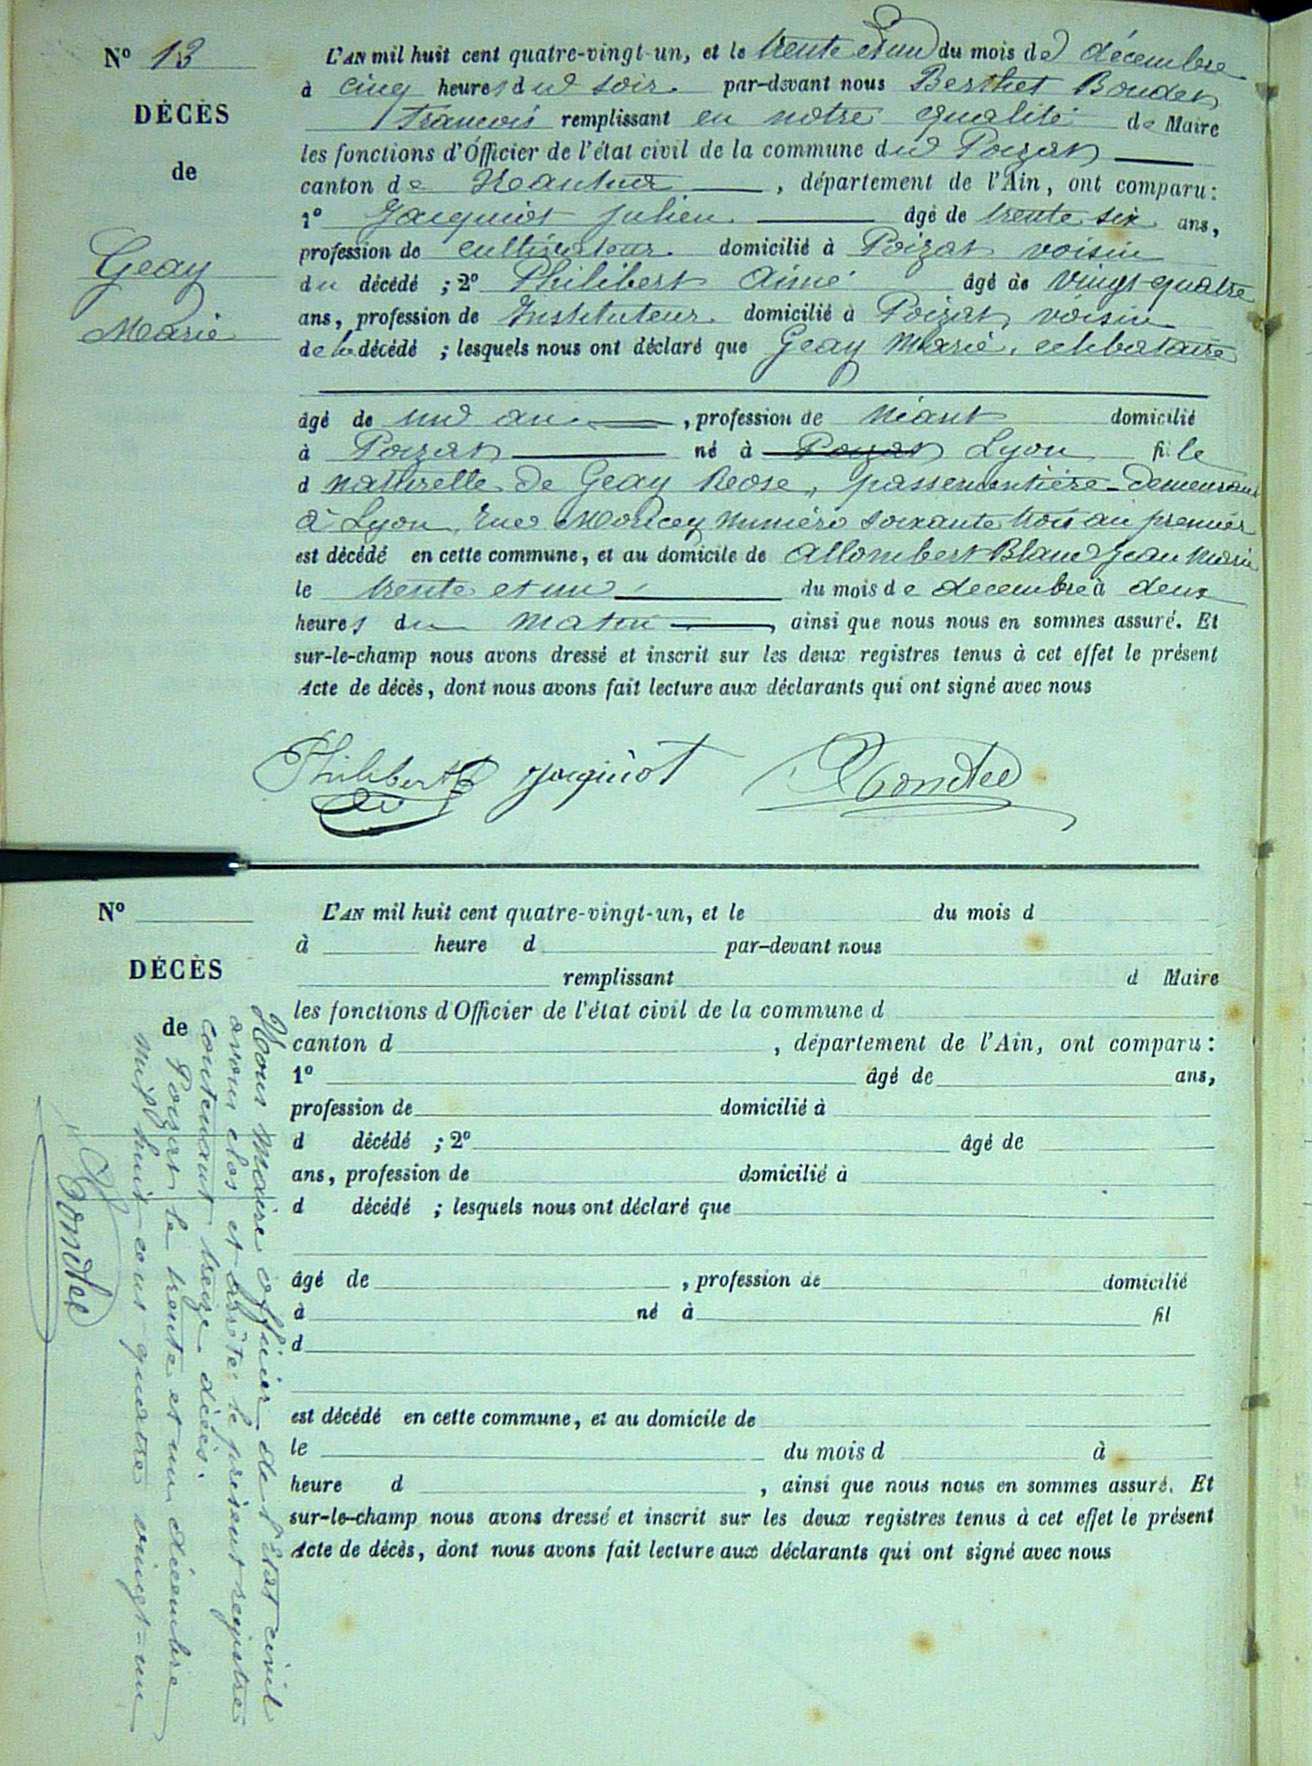 N° 13
DÉCÈS
de
Geay
Marie
L'AN mil huit cent quatre-vingt-un, et le trente et un du mois de décembre
à cinq heures du soir par-devant nous Berthet Bondet
François remplissant en notre qualité de Maire
les fonctions d'Officier de l'état civil de la commune du Poizat
canton de Nantua, département de l'Ain, ont comparu :
1° Jacquiot Julien âgé de trente six ans,
profession de cultivateur domicilié à Poizat voisin
du décédé ; 2° Philibert Aimé âgé de vingt-quatre
ans, profession de Instituteur domicilié à Poizat, voisin
de la décédé ; lesquels nous ont déclaré que Geay Marie, célibataire
âgé de un an, profession de néant domicilié
à Poizat né à Poizat Lyon fille
d naturelle de Geay Rose, passementière demeurant
à Lyon, Rue Moncey numéro soixante trois au premier
est décédé en cette commune, et au domicile de Allombert Blanc Jean Marie
le trente et un du mois de decembre à deux
heures du matin, ainsi que nous nous en sommes assuré. Et
sur-le-champ nous avons dressé et inscrit sur les deux registres tenus à cet effet le présent
Acte de décès, dont nous avons fait lecture aux déclarants qui ont signé avec nous
Philibert Jacquiot Bondet
N°
DÉCÈS
de
L'AN mil huit cent quatre-vingt-un, et le du mois d
à heure d par-devant nous
remplissant d Maire
les fonctions d'Officier de l'état civil de la commune d
canton d , département de l'Ain, ont comparu :
1° âgé de ans,
profession de domicilié à
d décédé ; 2° âgé de
ans, profession de domicilié à
d décédé ; lesquels nous ont déclaré que
âgé de , profession de domicilié
à né à fil
d
est décédé en cette commune, et au domicile de
le du mois d à
heure d , ainsi que nous nous en sommes assuré. Et
sur-le-champ nous avons dressé et inscrit sur les deux registres tenus à cet effet le présent
Acte de décès, dont nous avons fait lecture aux déclarants qui ont signé avec nous
Nous Maire officier de l'état civil
avons clos et arrêté le présent registre
contenant treize décès.
Poizat le trente et un décembre
mil huit cent quatre vingt-un
Bondet